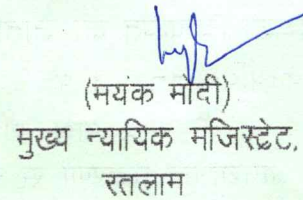 (मयंक मोदी)
मुख्य न्यायिक मजिस्टेट,
रतलाम